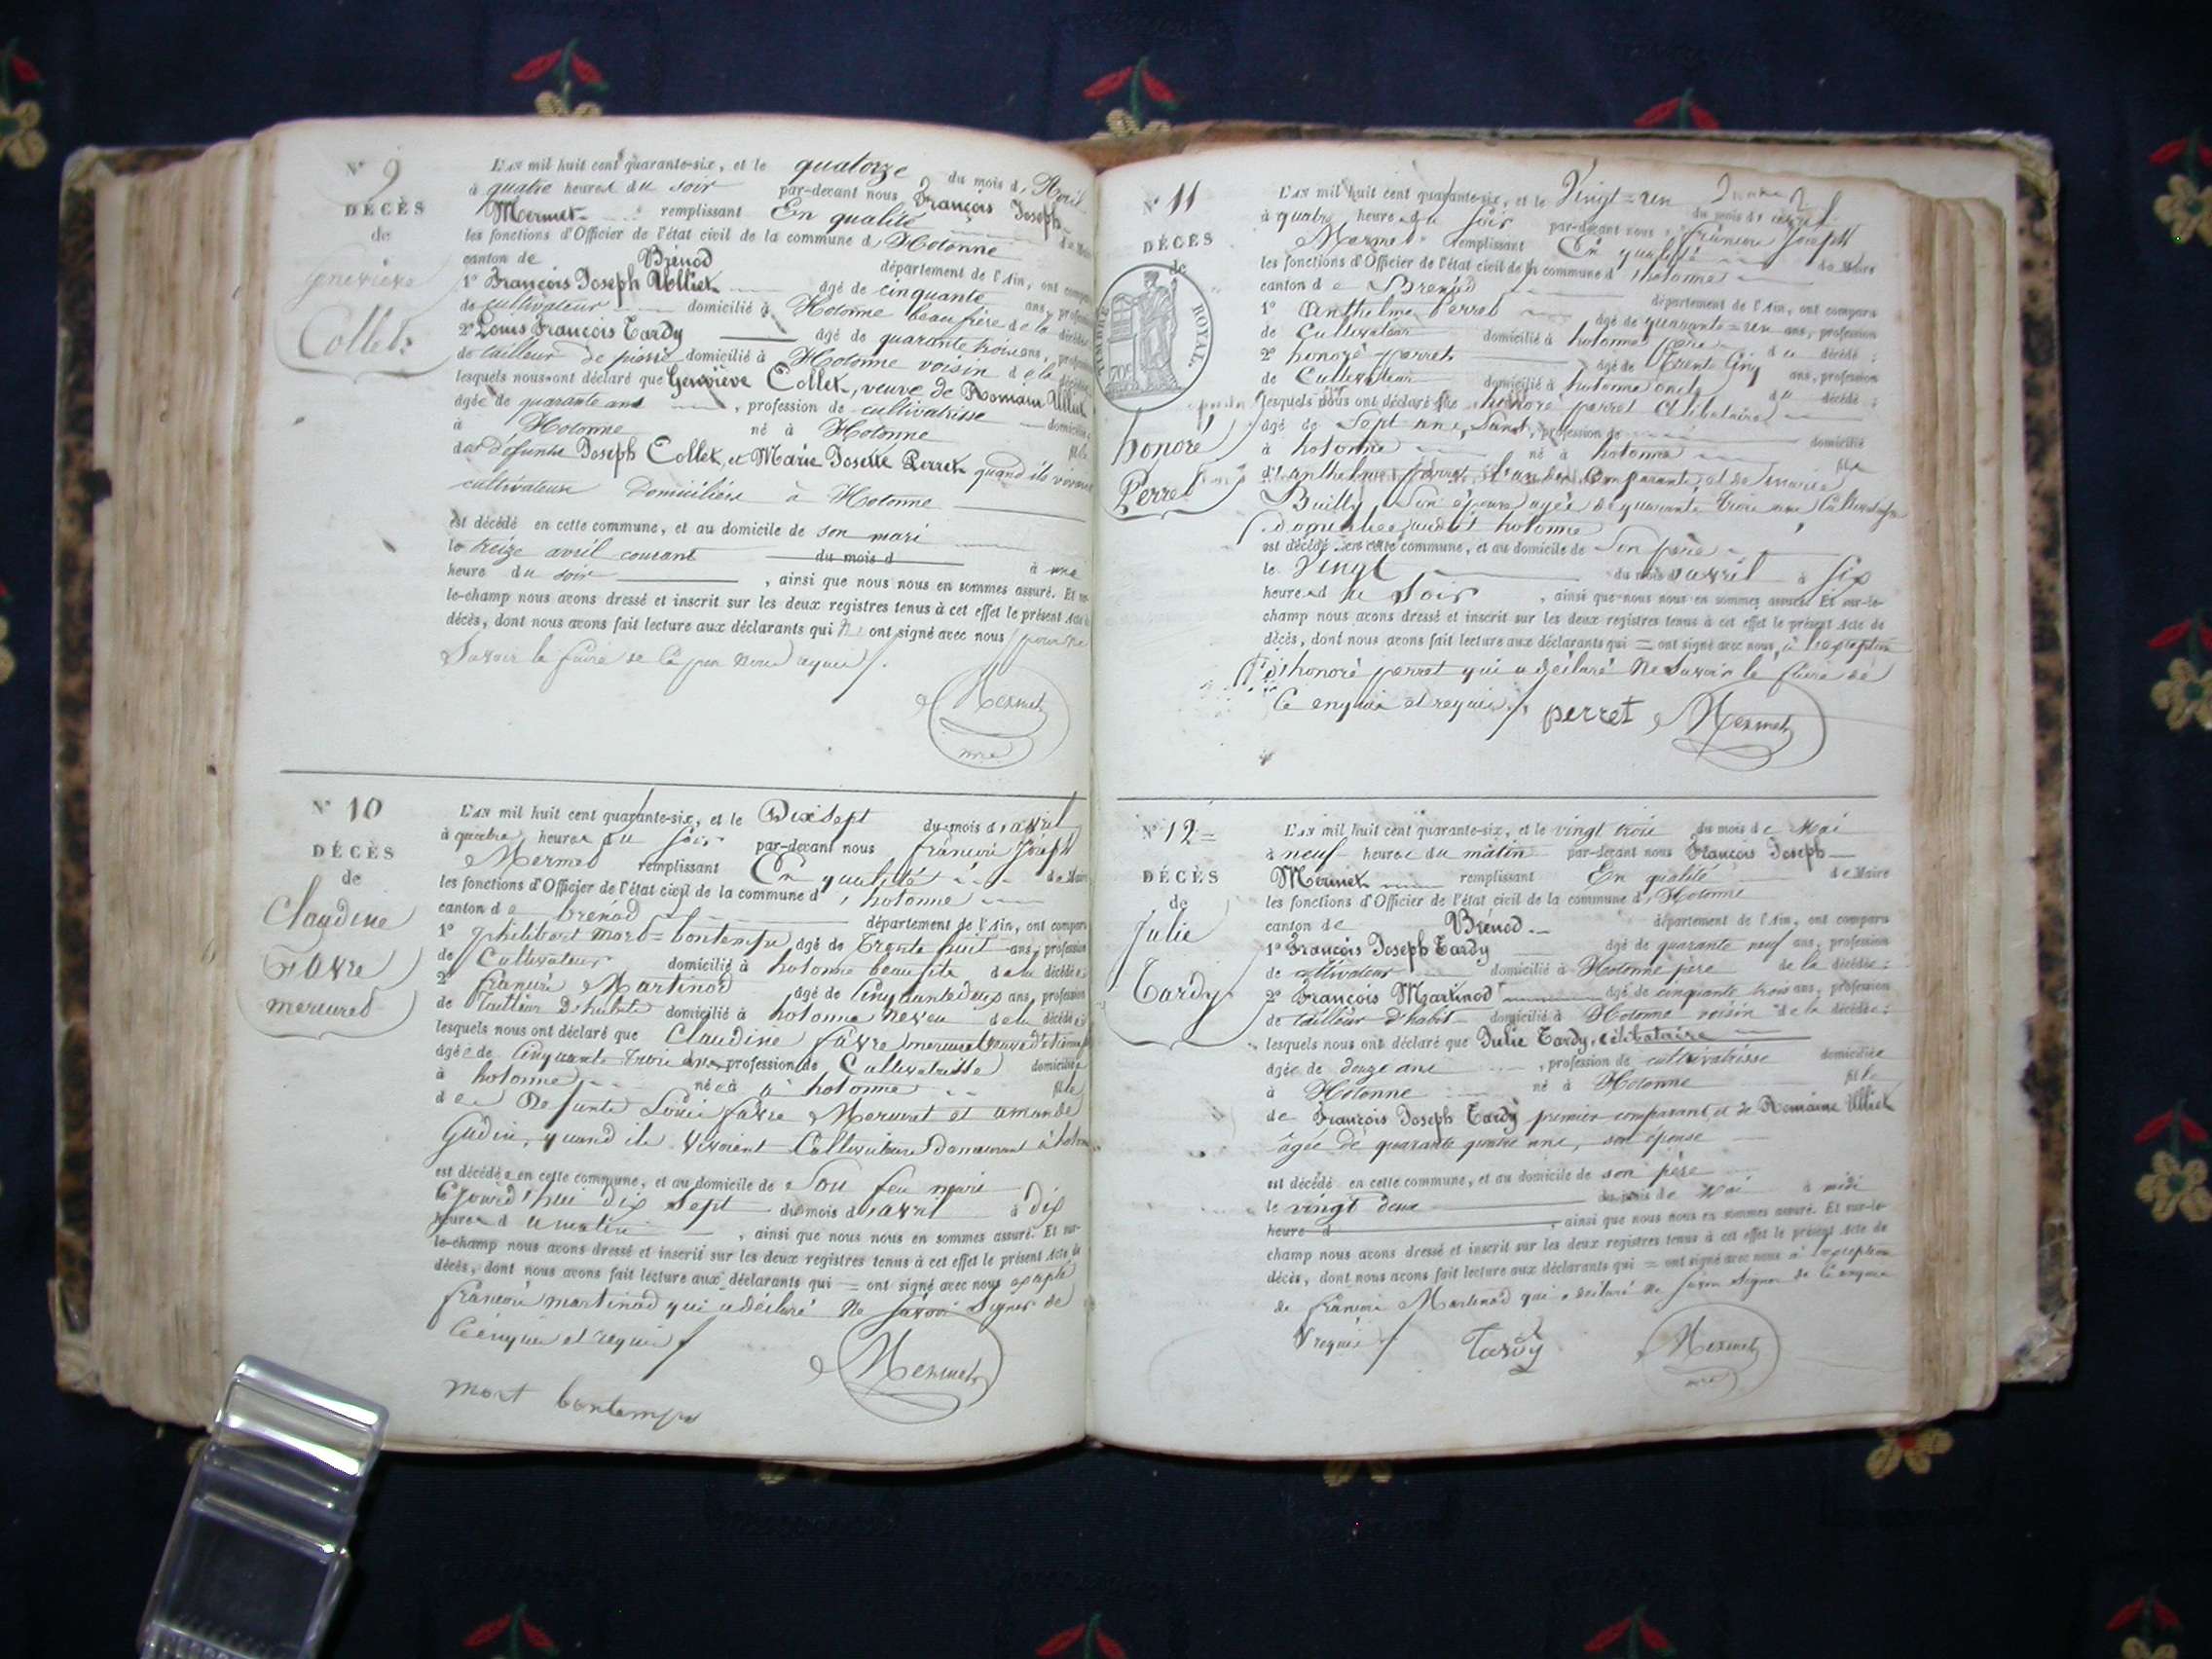 N° 9
DÉCÈS
de
Geneviève
Collet
L'AN mil huit cent quarante-six, et le quatorze du mois d'Avril
à quatre heures du soir par-devant nous François Joseph
Mermet remplissant En qualité de Maire
les fonctions d'Officier de l'état civil de la commune d'Hotonne
canton de Brénod département de l'Ain, ont comparu
1° François Joseph Ulliet agé de cinquante ans, profession
de cultivateur domicilié à Hotonne beau frère de la décédée
2° Louis François Tardy agé de quarante trois ans, profession
de tailleur de pierre domicilié à Hotonne voisin de la décédée
lesquels nous ont déclaré que Geneviève Collet, veuve de Romain Ulliet
âgée de quarante ans, profession de cultivatrisse domiciliée
à Hotonne né à Hotonne fille
des défunts Joseph Collet, et Marie Josette Perret quand ils vivaient
cultivateurs domiciliés à Hotonne
est décédé en cette commune, et au domicile de son mari
le treize avril courant du mois d à une
heure du soir, ainsi que nous nous en sommes assuré. Et sur-
le-champ nous avons dressé et inscrit sur les deux registres tenus à cet effet le présent Acte de
décès, dont nous avons fait lecture aux déclarants qui n' ont signé avec nous pour ne
Savoir le faire de ce par nous requis.
Mermet
mre
N° 10
DÉCÈS
de
Claudine
Favre
mercuret
L'AN mil huit cent quarante-six, et le Dix sept du mois d'avril
à quatre heures du soir par-devant nous françois joseph
Mermet remplissant En qualité de Maire
les fonctions d'Officier de l'état civil de la commune d'hotonne
canton de brénod département de l'Ain, ont comparu
1° philibert mort=bontemps agé de Trente huit ans, profession
de Cultivateur domicilié à hotonne beau fils de la décédée
2° françois Martinod agé de Cinquante deux ans, profession
de Tailleur D'habits domicilié à hotonne neveu de la décédée
lesquels nous ont déclaré que Claudine favre mercuret
âgée de Cinquante trois ans profession de Cultivatrisse domiciliée
à hotonne née à hotonne fille
des Defunts Louis favre Mercuret et amande
Gudin, quand ils vivoient Cultivateurs Demeurant à hotonne
est décédée en cette commune, et au domicile de Son feu mari
Cejourd'hui dix sept du mois d'avril à dix
heures du matin, ainsi que nous nous en sommes assuré. Et sur-
le-champ nous avons dressé et inscrit sur les deux registres tenus à cet effet le présent Acte de
décès, dont nous avons fait lecture aux déclarants qui = ont signé avec nous excepté
françois martinod qui a déclaré ne savoir signer de
ce enquis et requis
Mermet
mort bontemps
N° 11
DÉCÈS
de
TIMBRE ROYAL
honoré
Perret
L'AN mil huit cent quarante-six, et le Vingt=un du mois d'avril
à quatre heures du soir par-devant nous françois joseph
Mermet remplissant En qualité de Maire
les fonctions d'Officier de l'état civil de la commune d'hotonne
canton de Brénod département de l'Ain, ont comparu
1° Anthelme Perret agé de quarante=un ans, profession
de Cultivateur domicilié à hotonne père du décédé;
2° honoré perret agé de Trente Cinq ans, profession
de Cultivateur domicilié à hotonne oncle du décédé;
lesquels nous ont déclaré que honoré perret Célibataire
âgé de Sept ans, Sans, profession de domicilié
à hotonne né à hotonne fils
d'anthelme perret l'un des Comparants, et de marie
Builly Son épouse agée de quarante trois ans Cultivatrisse
domiciliée audit hotonne
est décédé en cette commune, et au domicile de Son père
le Vingt du mois d'avril à six
heures du Soir, ainsi que nous nous en sommes assuré. Et sur-le-
champ nous avons dressé et inscrit sur les deux registres tenus à cet effet le présent Acte de
décès, dont nous avons fait lecture aux déclarants qui = ont signé avec nous, à l'exception
d'honoré perret qui a déclaré ne Savoir le faire de
ce enquis et requis. perret Mermet
N° 12
DÉCÈS
de
Julie
Tardy
L'AN mil huit cent quarante-six, et le vingt trois du mois de Mai
à neuf heures du matin par-devant nous François Joseph
Mermet remplissant En qualité de Maire
les fonctions d'Officier de l'état civil de la commune d'Hotonne
canton de Brénod département de l'Ain, ont comparu
1° François Joseph Tardy agé de quarante neuf ans, profession
de cultivateur domicilié à Hotonne père de la décédée;
2° François Martinod agé de cinquante trois ans, profession
de tailleur d'habit domicilié à Hotonne voisin de la décédée;
lesquels nous ont déclaré que Julie Tardy, célibataire
âgée de douze ans, profession de cultivatrisse domiciliée
à Hotonne né à Hotonne fille
de François Joseph Tardy premier comparant, et de Romaine Ulliet
âgée de quarante quatre ans, son épouse
est décédé en cette commune, et au domicile de son père
le vingt deux du mois de Mai à midi
heure d, ainsi que nous nous en sommes assuré. Et sur-le-
champ nous avons dressé et inscrit sur les deux registres tenus à cet effet le présent Acte de
décès, dont nous avons fait lecture aux déclarants qui = ont signé avec nous à l'exception
de françois Martinod qui a déclaré ne savoir signer de ce enquis
& requis Tardy Mermet
mre